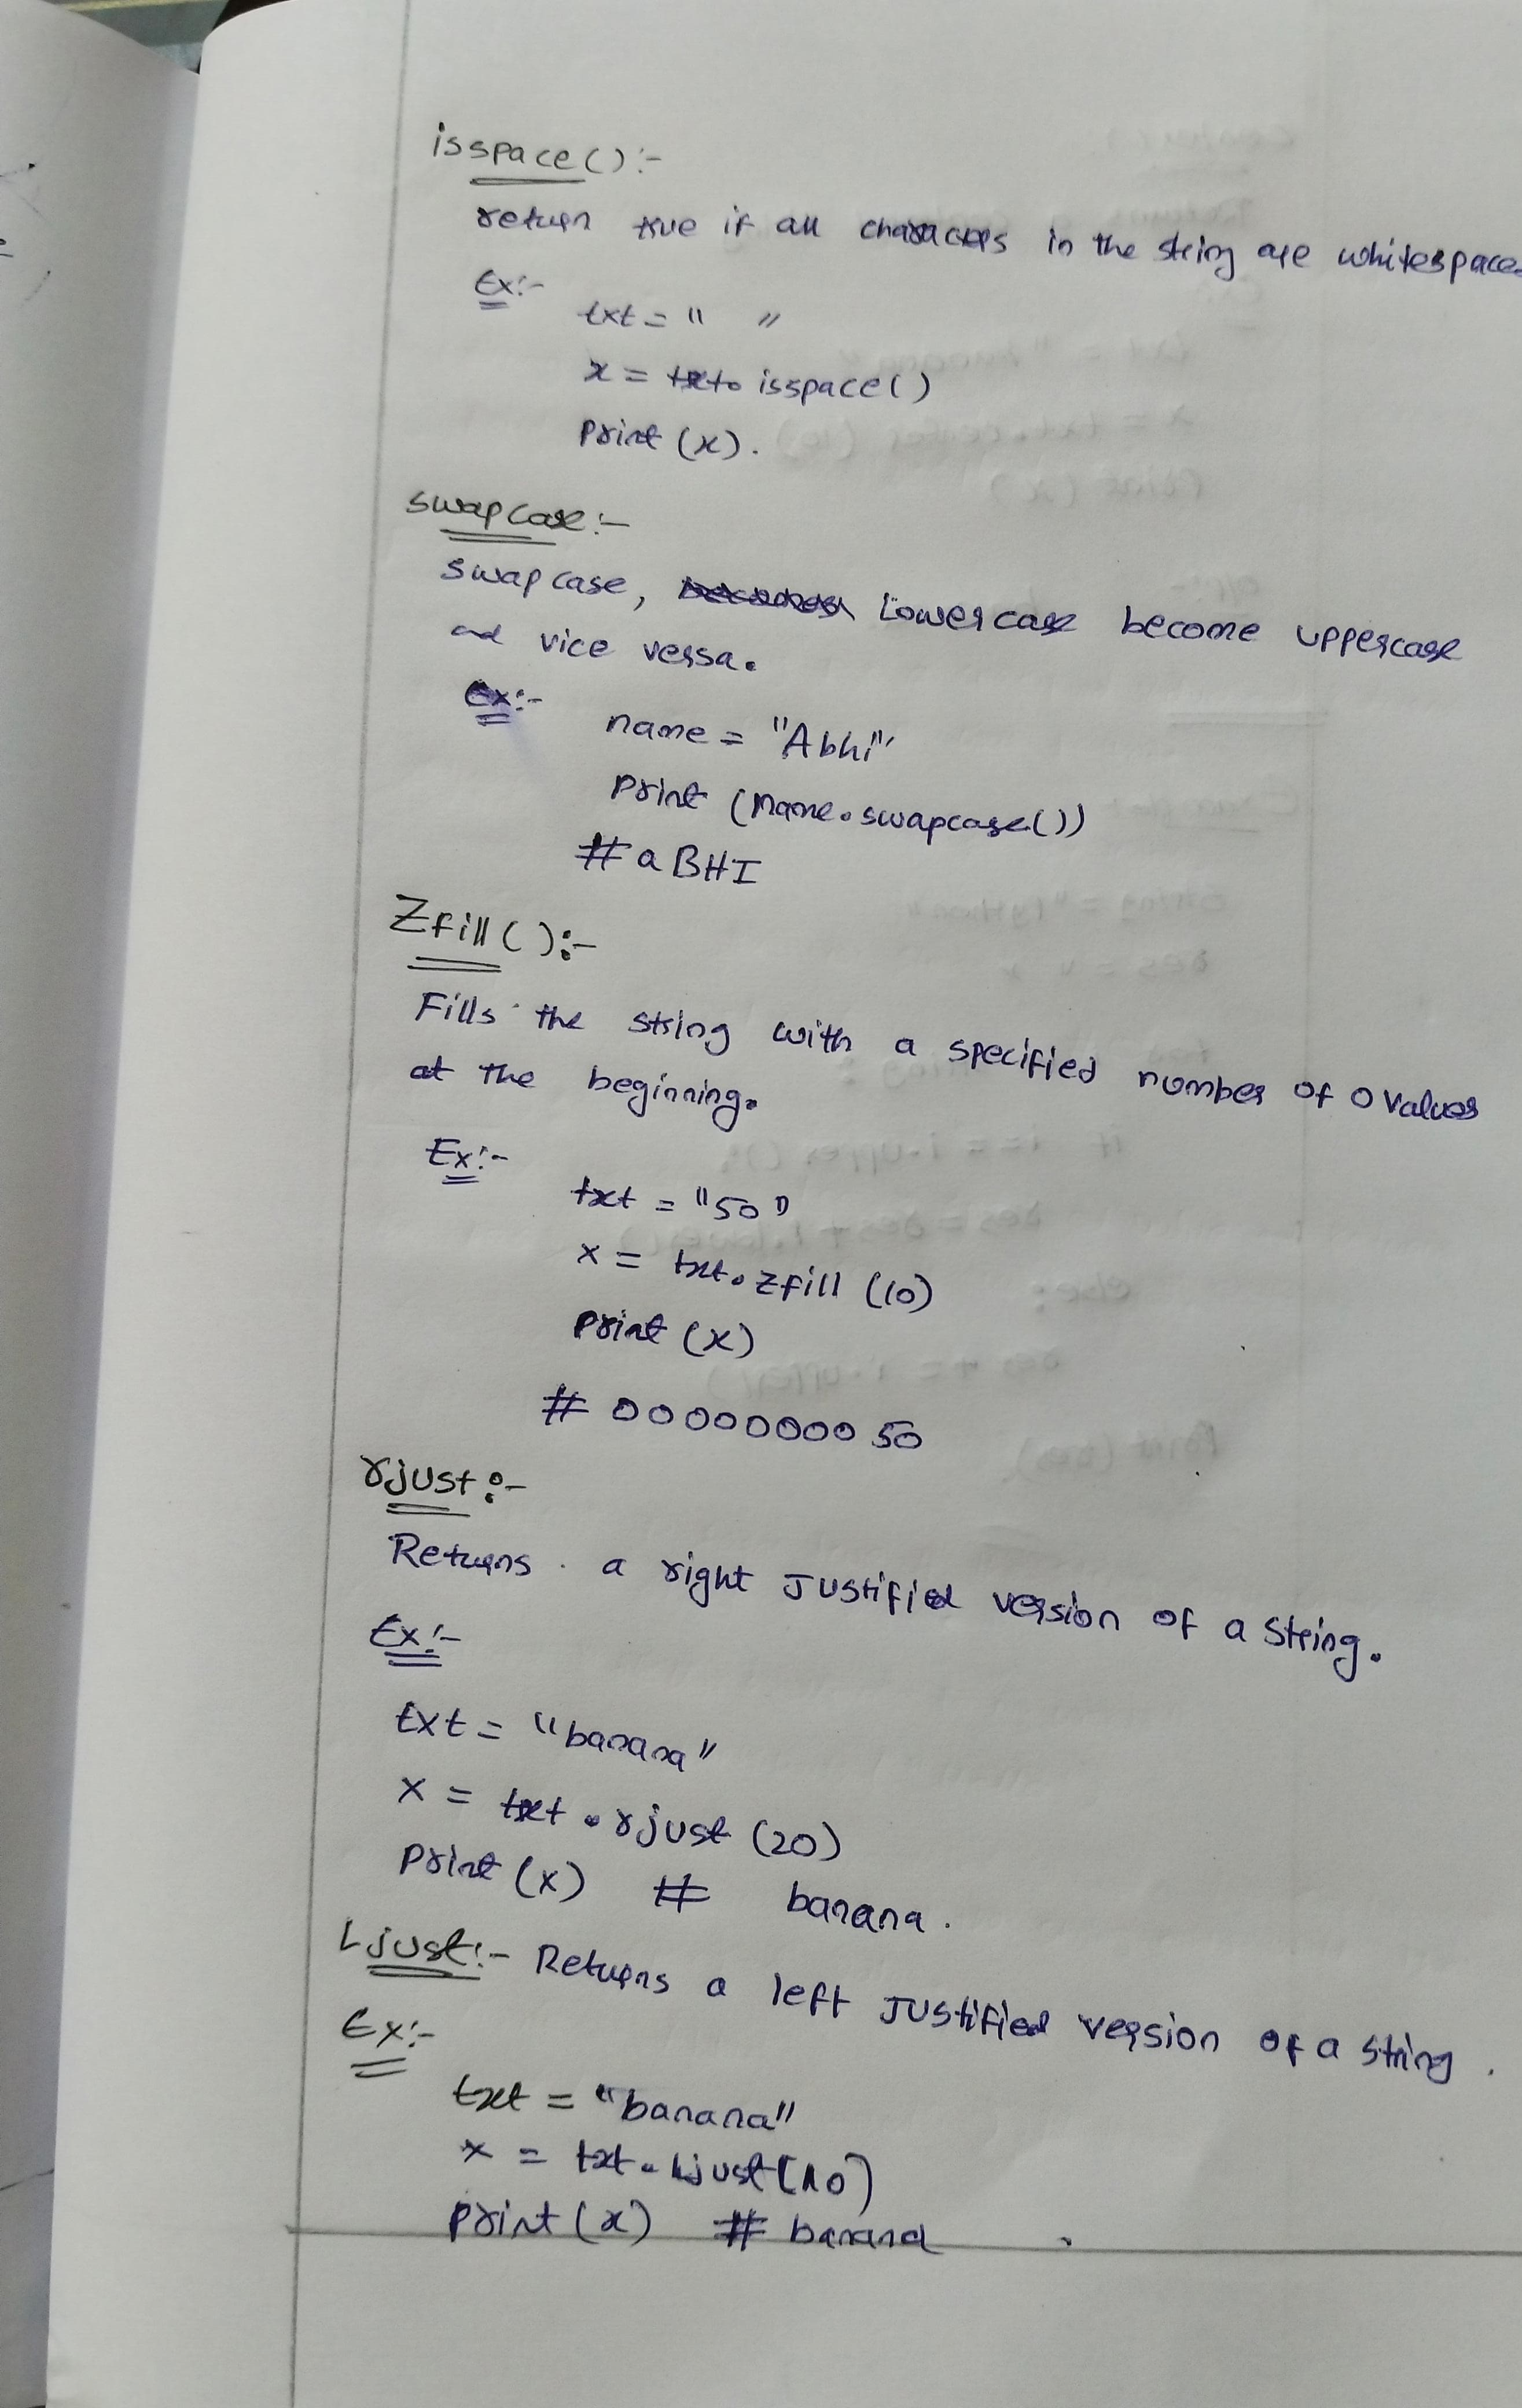 isspace():-
return true if all characters in the string are whitespaces
Ex:-
txt = " "
x = txt. isspace()
print (x).
swapcase:-
swapcase, Lowercase become uppercase
and vice versa.
Ex:-
name = "Abhi"
print (name.swapcase())
# aBHI
Zfill():-
Fills the string with a specified number of 0 values
at the beginning.
Ex:-
txt = "50"
x = txt.zfill (10)
print (x)
# 0000000050
rjust:-
Returns a right Justified version of a string.
Ex:-
txt = "banana"
x = txt.rjust (20)
print (x) # banana.
Ljust:- Returns a left Justified version of a string.
Ex:-
txt = "banana"
x = txt.ljust(10)
print (x) # banana .